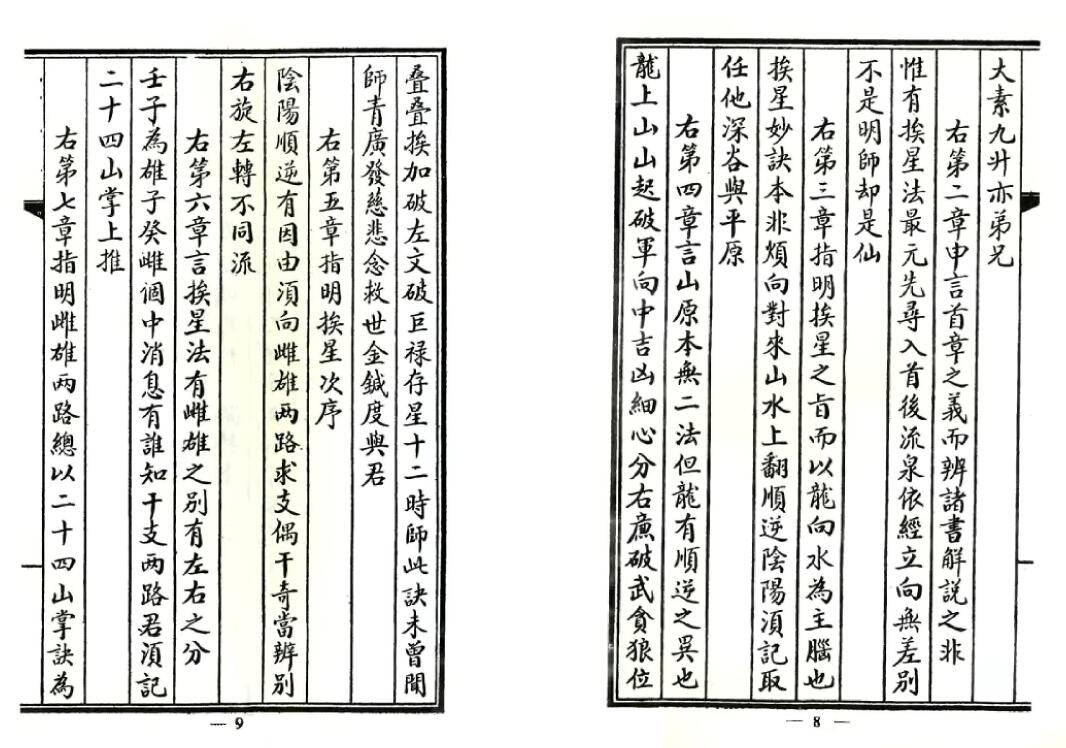 大素九升亦弟兄
右第二章申言首章之義而辨諸書解說之非
惟有挨星法最元先尋入首後流泉依經立向無差別
不是明師却是仙
右第三章指明挨星之旨而以龍向水為主腦也
挨星妙訣本非煩向對來山水上翻順逆陰陽須記取
任他深谷與平原
右第四章言山原本無二法但龍有順逆之異也
龍上山山起破軍向中吉凶細心分右廉破武貪狼位
— 8 —
疊疊挨加破左文破巨祿存星十二時師此訣未曾聞
師青廣發慈悲念救世金鍼度與君
右第五章指明挨星次序
陰陽順逆有因由須向雌雄两路求支偶干奇當辨別
右旋左轉不同流
右第六章言挨星法有雌雄之別有左右之分
壬子為雄子癸雌個中消息有誰知干支两路君須記
二十四山掌上推
右第七章指明雌雄两路總以二十四山掌訣為
— 9